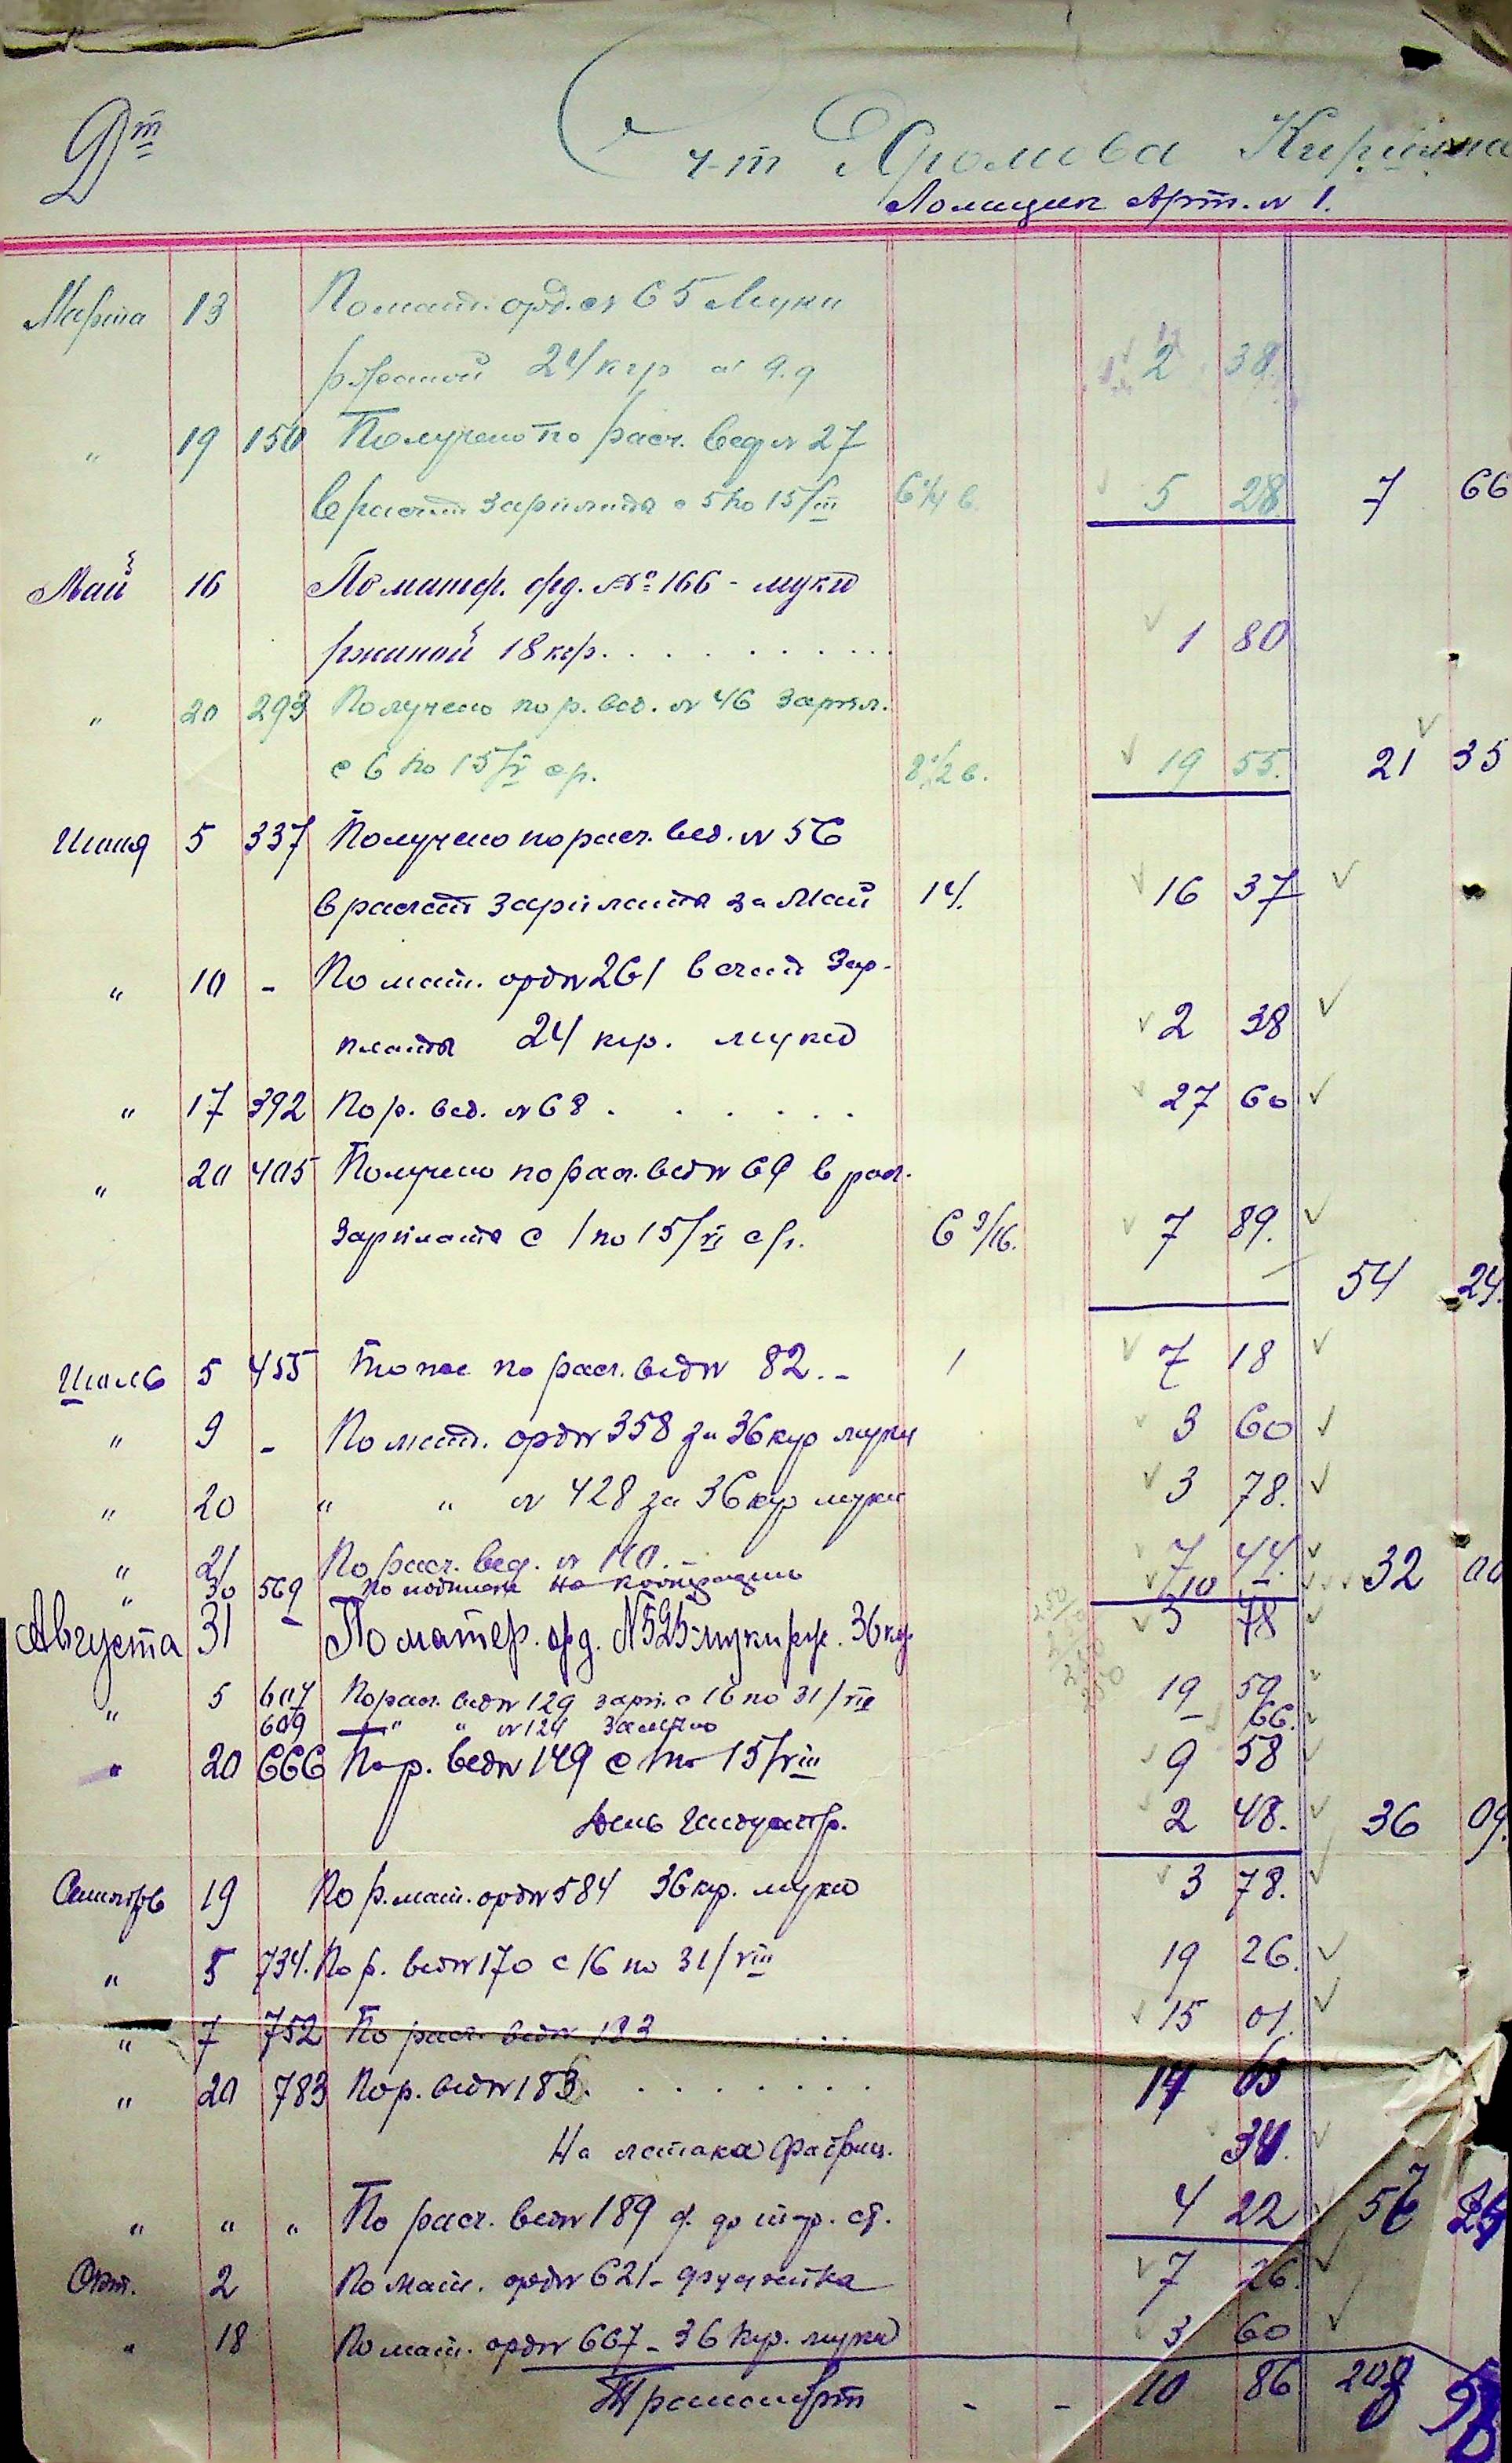 Дт
Сч-т Хромова
Арт. № 1.
Марта 13 По мат. орд. № 65 Муки
ржаной 24 кгр а 9.9 2 38
" 19 150 Получено по расч. вед № 27
в расчет зарплата с 5 по 15/III 6 1/4 в. 5 28. 7 66
Май 16 По матер. орд. № 166 - муки
ржаной 18 кгр. . . . . . . . . . 1 80
" 20 293 Получено по р. вед. № 46 зарпл.
с 6 по 15/V с.г. 8 1/2 в. 19 55. 21 35
Июня 5 337 Получено по расч. вед. № 56
в расчет зарплата за Май 14. 16 37
" 10 - По мат. орд № 261 в счет зар-
платы 24 кгр. муки 2 38
" 17 392 По р. вед. № 68 . . . . . . 27 60
" 20 405 Получено по расч. вед № 69 в рас.
зарплата с 1 по 15/VI с/г. 6 9/16. 7 89.
54 24.
Июль 5 455 То же по расч. вед № 82. - 1 7 18
" 9 - По мат. орд № 358 за 36 кгр муки 3 60
" 20 " " № 428 за 36 кгр муки 3 78.
" 21 По расч. вед. № 110. 7 44. 32 00
" 30 569 По подписке на кооперацию 10 -
Августа 31 По матер. орд. № 525 муки рж. 36 кгр. 3 78
" 5 607 По расч. вед № 129 зарп. с 16 по 31/VII 19 59
609 " " № 124 66.
" 20 666 По р. вед № 149 с 1 по 15/VIII 9 58
День Индустр. 2 48. 36 09.
Сентябрь 19 По р. мат. орд № 584 36 кгр. муки 3 78.
" 5 734. По р. вед № 170 с 16 по 31/VIII 19 26.
" 7 752 По расч. вед № 183 . . . 15 01.
" 20 783 По р. вед № 183. . . . . . . . 14
На 34.
" " " По расч. вед № 189 4 22
Окт. 2 По мат. орд № 621 - 7 26.
" 18 По мат. орд № 667 - 36 кгр. муки 3 60
Транспорт - - 10 86